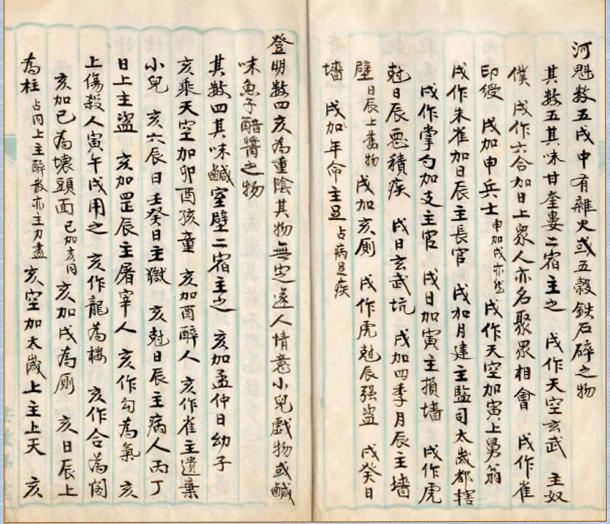 河魁数五戌中有雜火或五穀鉄石碎之物
其数五其味甘奎婁二宿主之 戌作天空玄武 主奴
僕 戌作六合加日上衆人亦名聚眾相會 戌作雀
印綬 戌加申兵士申加戌亦然 戌作天空加寅上舅翁
戌作朱雀加日辰主長官 戌加月建主監司太歲都轄
戌作掌勾加支主官 戌日加寅主損墻 戌作虎
尅日辰悪積疾 戌日玄武坑 戌加四季月辰主墻
壁日辰上舊物 戌加亥厠 戌作虎尅辰强盗 戌癸日
墻 戌加年命主足占病足疾
登明数四亥為重陰其物無定逐人情意小兒戲物或鹹
味魚子醋醬之物
其数四其味鹹室壁二宿主之 亥加孟仲日幼子
亥乘天空加卯酉孩童 亥加酉醉人 亥作雀主遺棄
小兒 亥六辰日壬癸日主獄 亥尅日辰主病人丙丁
日上主盜 亥加罡辰主屠宰人 亥作勾為氣 亥
上傷殺人寅午戌用之 亥作龍為樓 亥作合為閣
亥加巳為壞頭面巳加亥同 亥加戌為厠 亥日辰上
為柱占同上主辭散亦主力盡 亥空加太歲上主上天 亥